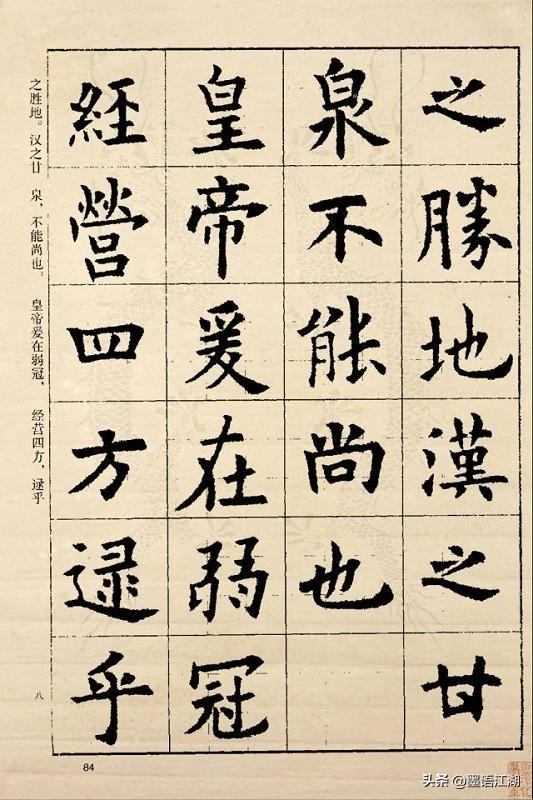 之勝地漢之甘
泉不能尚也
皇帝爰在弱冠
經營四方逯乎
之胜地。汉之甘 泉，不能尚也。 皇帝爰在弱冠， 经营四方，逯乎
八
84
头条 @墨语江湖